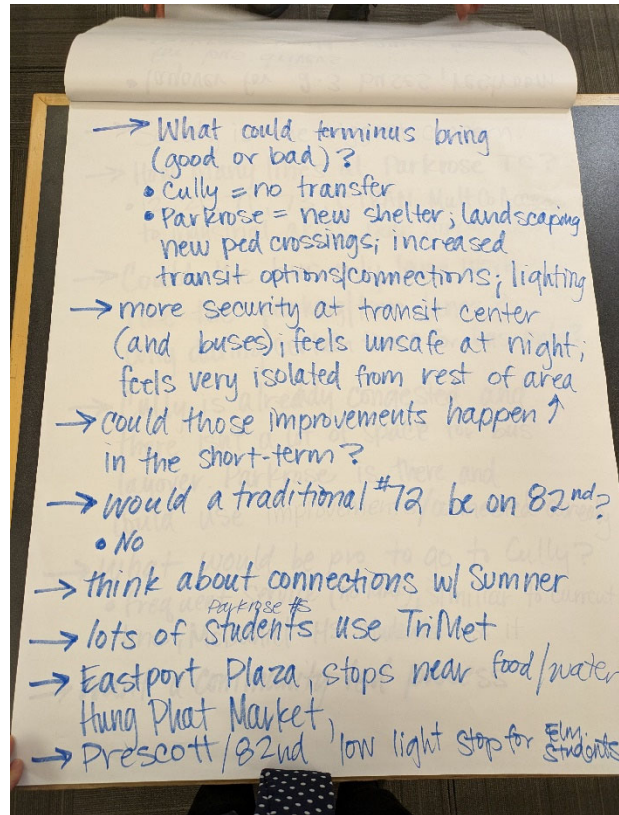 → What could terminus bring
(good or bad)?
• Cully = no transfer
• Parkrose = new shelter; landscaping
new ped crossings; increased
transit options/connections; lighting
→ more security at transit center
(and buses); feels unsafe at night;
feels very isolated from rest of area
→ could those improvements happen ↑
in the short-term?
→ would a traditional #72 be on 82nd?
• No
→ think about connections w/ Sumner
Parkrose HS
→ lots of students use TriMet
→ Eastport Plaza, stops near food/water
Hung Phat Market,
→ Prescott/82nd, low light stop for Elm. Students